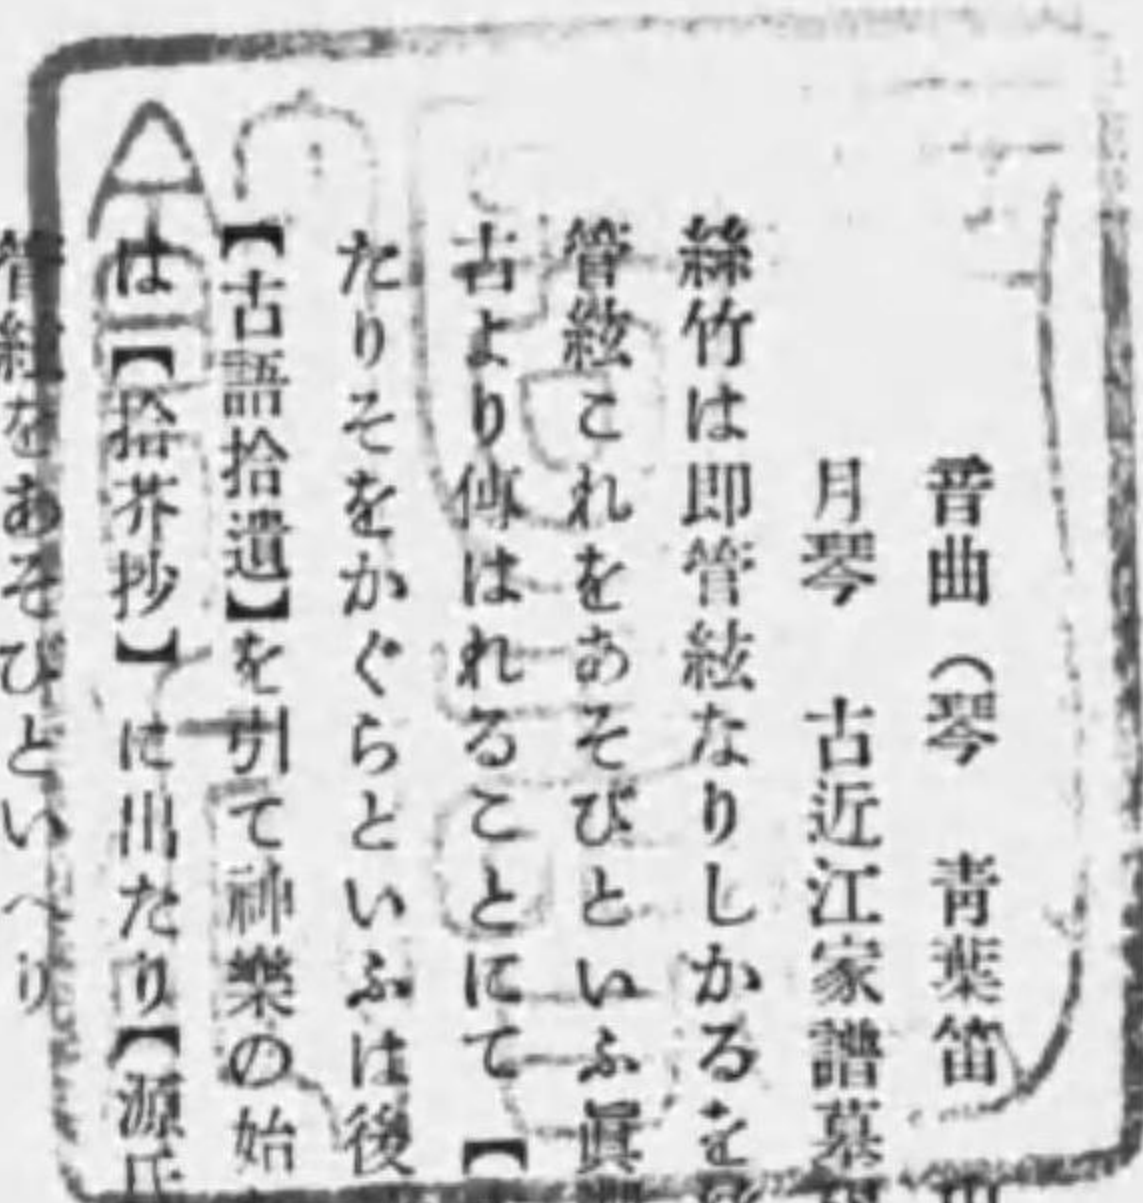 音曲（琴　靑葉笛
月琴　古近江家譜墓
絲竹は即管絃なりしかるを
管絃これをあそびといふ眞
古より傳はれることにて【
たりそをかぐらといふは後
【古語拾遺】を引て神樂の始
は【拾芥抄】に出たり【源氏
管絃をあそびといへり